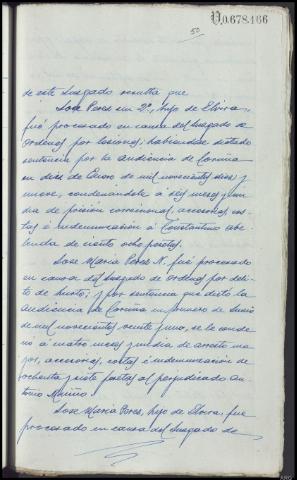 V.0.678.166
50
de este Juzgado resulta que
Jose Peres sin 2º, hijo de Elvira,
fué procesado en causa del Juzgado de
Ordenes por lesiones; habiendose dictado
sentencia por la Audiencia de Coruña
en dies de Enero de mil novecientos dies y
nueve, condenándole á seis meses y un
dia de prisión correccional, accesorias cos-
tas é indemnización á Constantino
de ciento ocho pesetas.
Jose Maria Peres N. fué procesado
en causa del Juzgado de Ordenes por deli-
to de hurto; y por sentencia que dictó la
Audiencia de Coruña en primero de Junio
de mil novecientos veinte y uno, se le conde-
nó á cuatro meses y un dia de arresto ma-
yor, accesorias, costas é indemnización de
ochenta y siete pesetas al perjudicado An-
tonio Mariño.
Jose Maria Peres, hijo de Elvira, fue
procesado en causa del Juzgado de